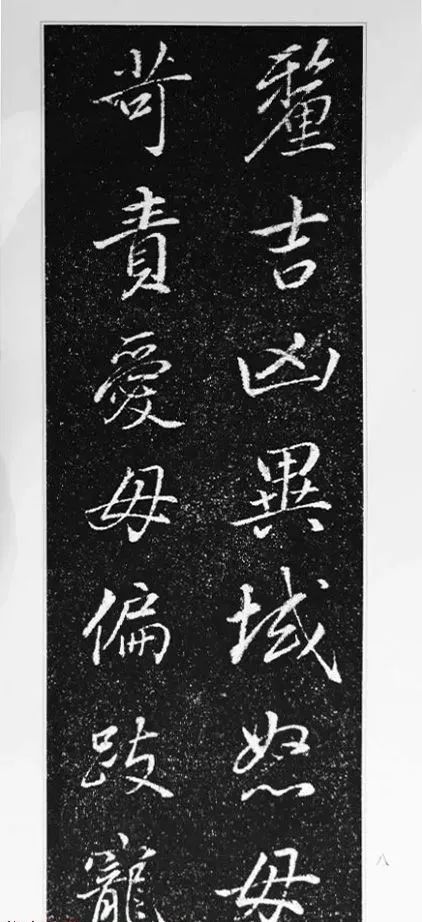 釐吉凶異域怒毋
苛責愛毋偏跂寵
八